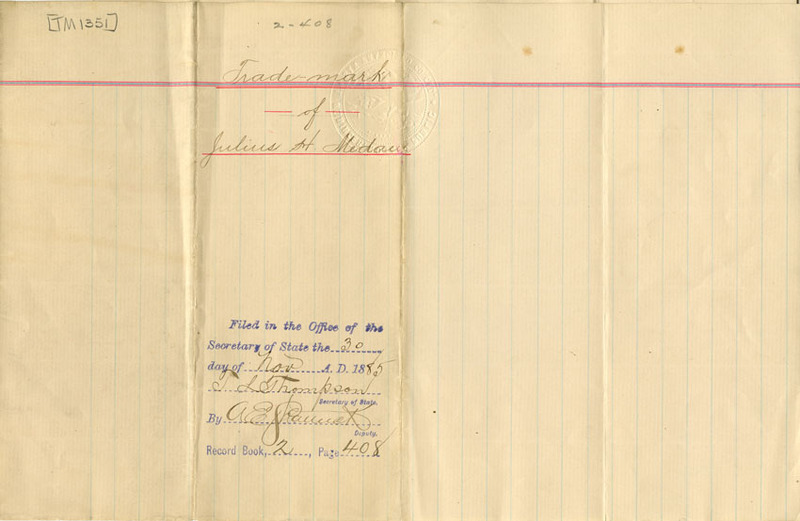 [TM 1351]
2-408
Trade-mark
— of —
Julius H
Filed in the Office of the
Secretary of State the 30
day of Nov A. D. 1885
T L Thompson
Secretary of State.
By A. E.
Deputy.
Record Book, 2, Page 408